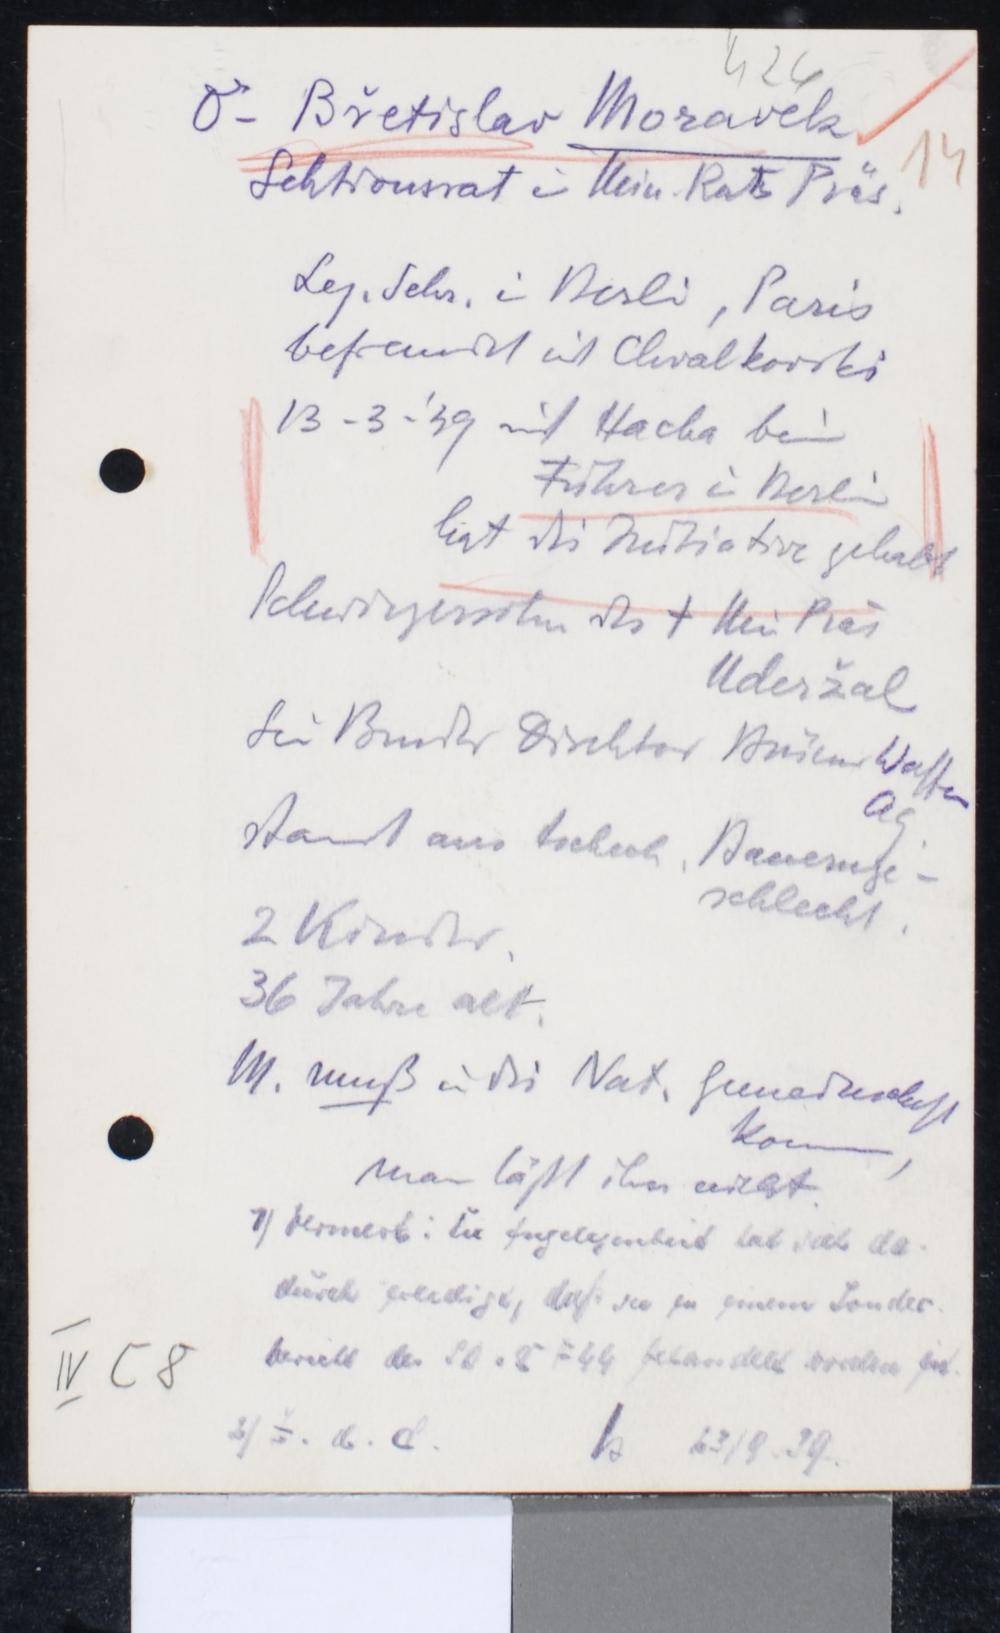 424
Dr. Břetislav Moravek
14
Sektionsrat i Min. Rats Präs.
Leg. Sekr. i Berli, Paris
befreundet mit Chvalkovski
13-3-'39 mit Hacha bei
Führer i Berlin
hat die Initiative gehabt
Schwiegersohn des † Min Präs
Uderžal
Sein Bruder Direktor Brünner Waffen
AG
stammt aus tschech. Bauernge-
schlecht.
2 Kinder.
36 Jahre alt.
M. muß in die Nat. Gemeinschaft
komm,
man läßt ihn nicht.
1) Vermerk: Die Angelegenheit hat sich da-
durch erledigt, daß sie in einem Sonder-
bericht des behandelt worden ist.
IV C 8
2) z. d. A.
23/9.39.